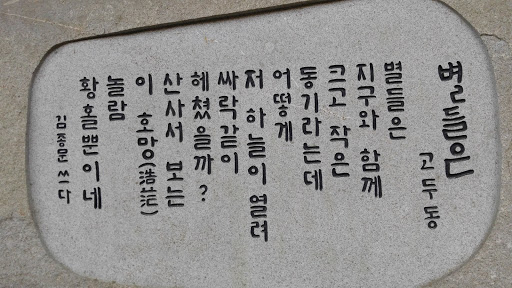 별들은
고두동
별들은
지구와 함께
크고 작은
동기라는데
어떻게
저 하늘이 열려
싸락같이
헤쳤을까?
산사서 보는
이 호망(浩茫)
놀람
황홀뿐이네
김종문 쓰다